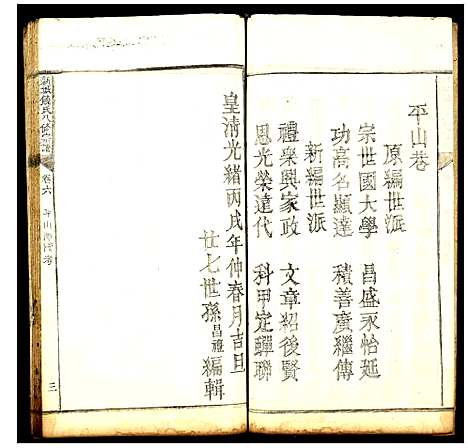 平山巷
原編世派
宗世國大學　昌盛永怡延
功高名顯達　積善廣繼傳
新編世派
禮樂興家政　文章紹後賢
恩光榮達代　科甲定蟬聯
皇清光緒丙戌年仲春月吉旦
廿七世孫昌禮編輯
卷六
三